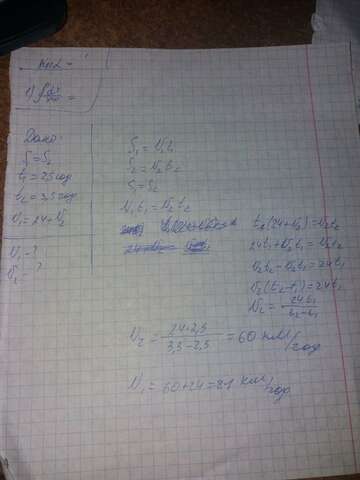 Дано:
S₁ = S₂
t₁ = 2,5 год
t₂ = 3,5 год
V₁ = 24 + V₂
V₁ - ?
V₂ - ?
S₁ = V₁t₁
S₂ = V₂t₂
S₁ = S₂
V₁t₁ = V₂t₂
t₁(24+V₂) = V₂t₂
24t₁ + V₂t₁ = V₂t₂
V₂t₂ - V₂t₁ = 24t₁
V₂(t₂-t₁) = 24t₁
V₂ = 24t₁ / t₂-t₁
V₂ = 24·2,5 / 3,5-2,5 = 60 км/год
V₁ = 60+24 = 84 км/год